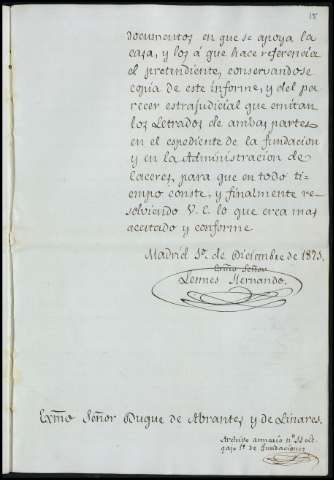 15
documentos en que se apoya la
casa, y los á que hace referencia
el pretendiente, conservandose
copia de este informe, y del pa
recer estrajudicial que emitan
los Letrados de ambas partes
en el espediente de la fundacion
y en la Administracion de
Caceres, para que en todo ti-
empo conste, y finalmente re-
solviendo V. E. lo que crea mas
acertado y conforme.
Madrid 1º. de Diciembre de 1875.
Exmo Señor
Hernando.
Exmo Señor Duque de Abrantes y de Linares.
Archivo annario nº
gajo 1º de fundaciones